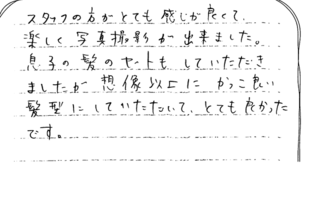 スタッフの方がとても感じが良くて、
楽しく写真撮影が出来ました。
息子の髪のセットもしていただき
ましたが想像以上にかっこ良い
髪型にしていただいて、とても良かった
です。